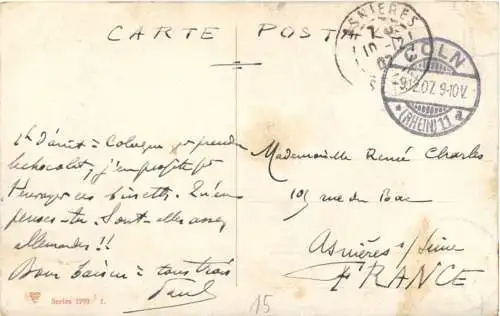 CARTE POSTALE
ASNIERES
CÖLN
9.12.07. 9-10V.
* (RHEIN) 11 d
1h d'arrêt à Cologne pr prendre
le chocolat, j'en profite pr
t'envoyer ces binettes. Qu'en
penses-tu. Sont-elles assez
allemandes !!
Bons baisers à tous trois
Paul
Mademoiselle Renée Charles
105 rue du Bac
Asnières s/Seine
FRANCE
Series 1991 1.
15